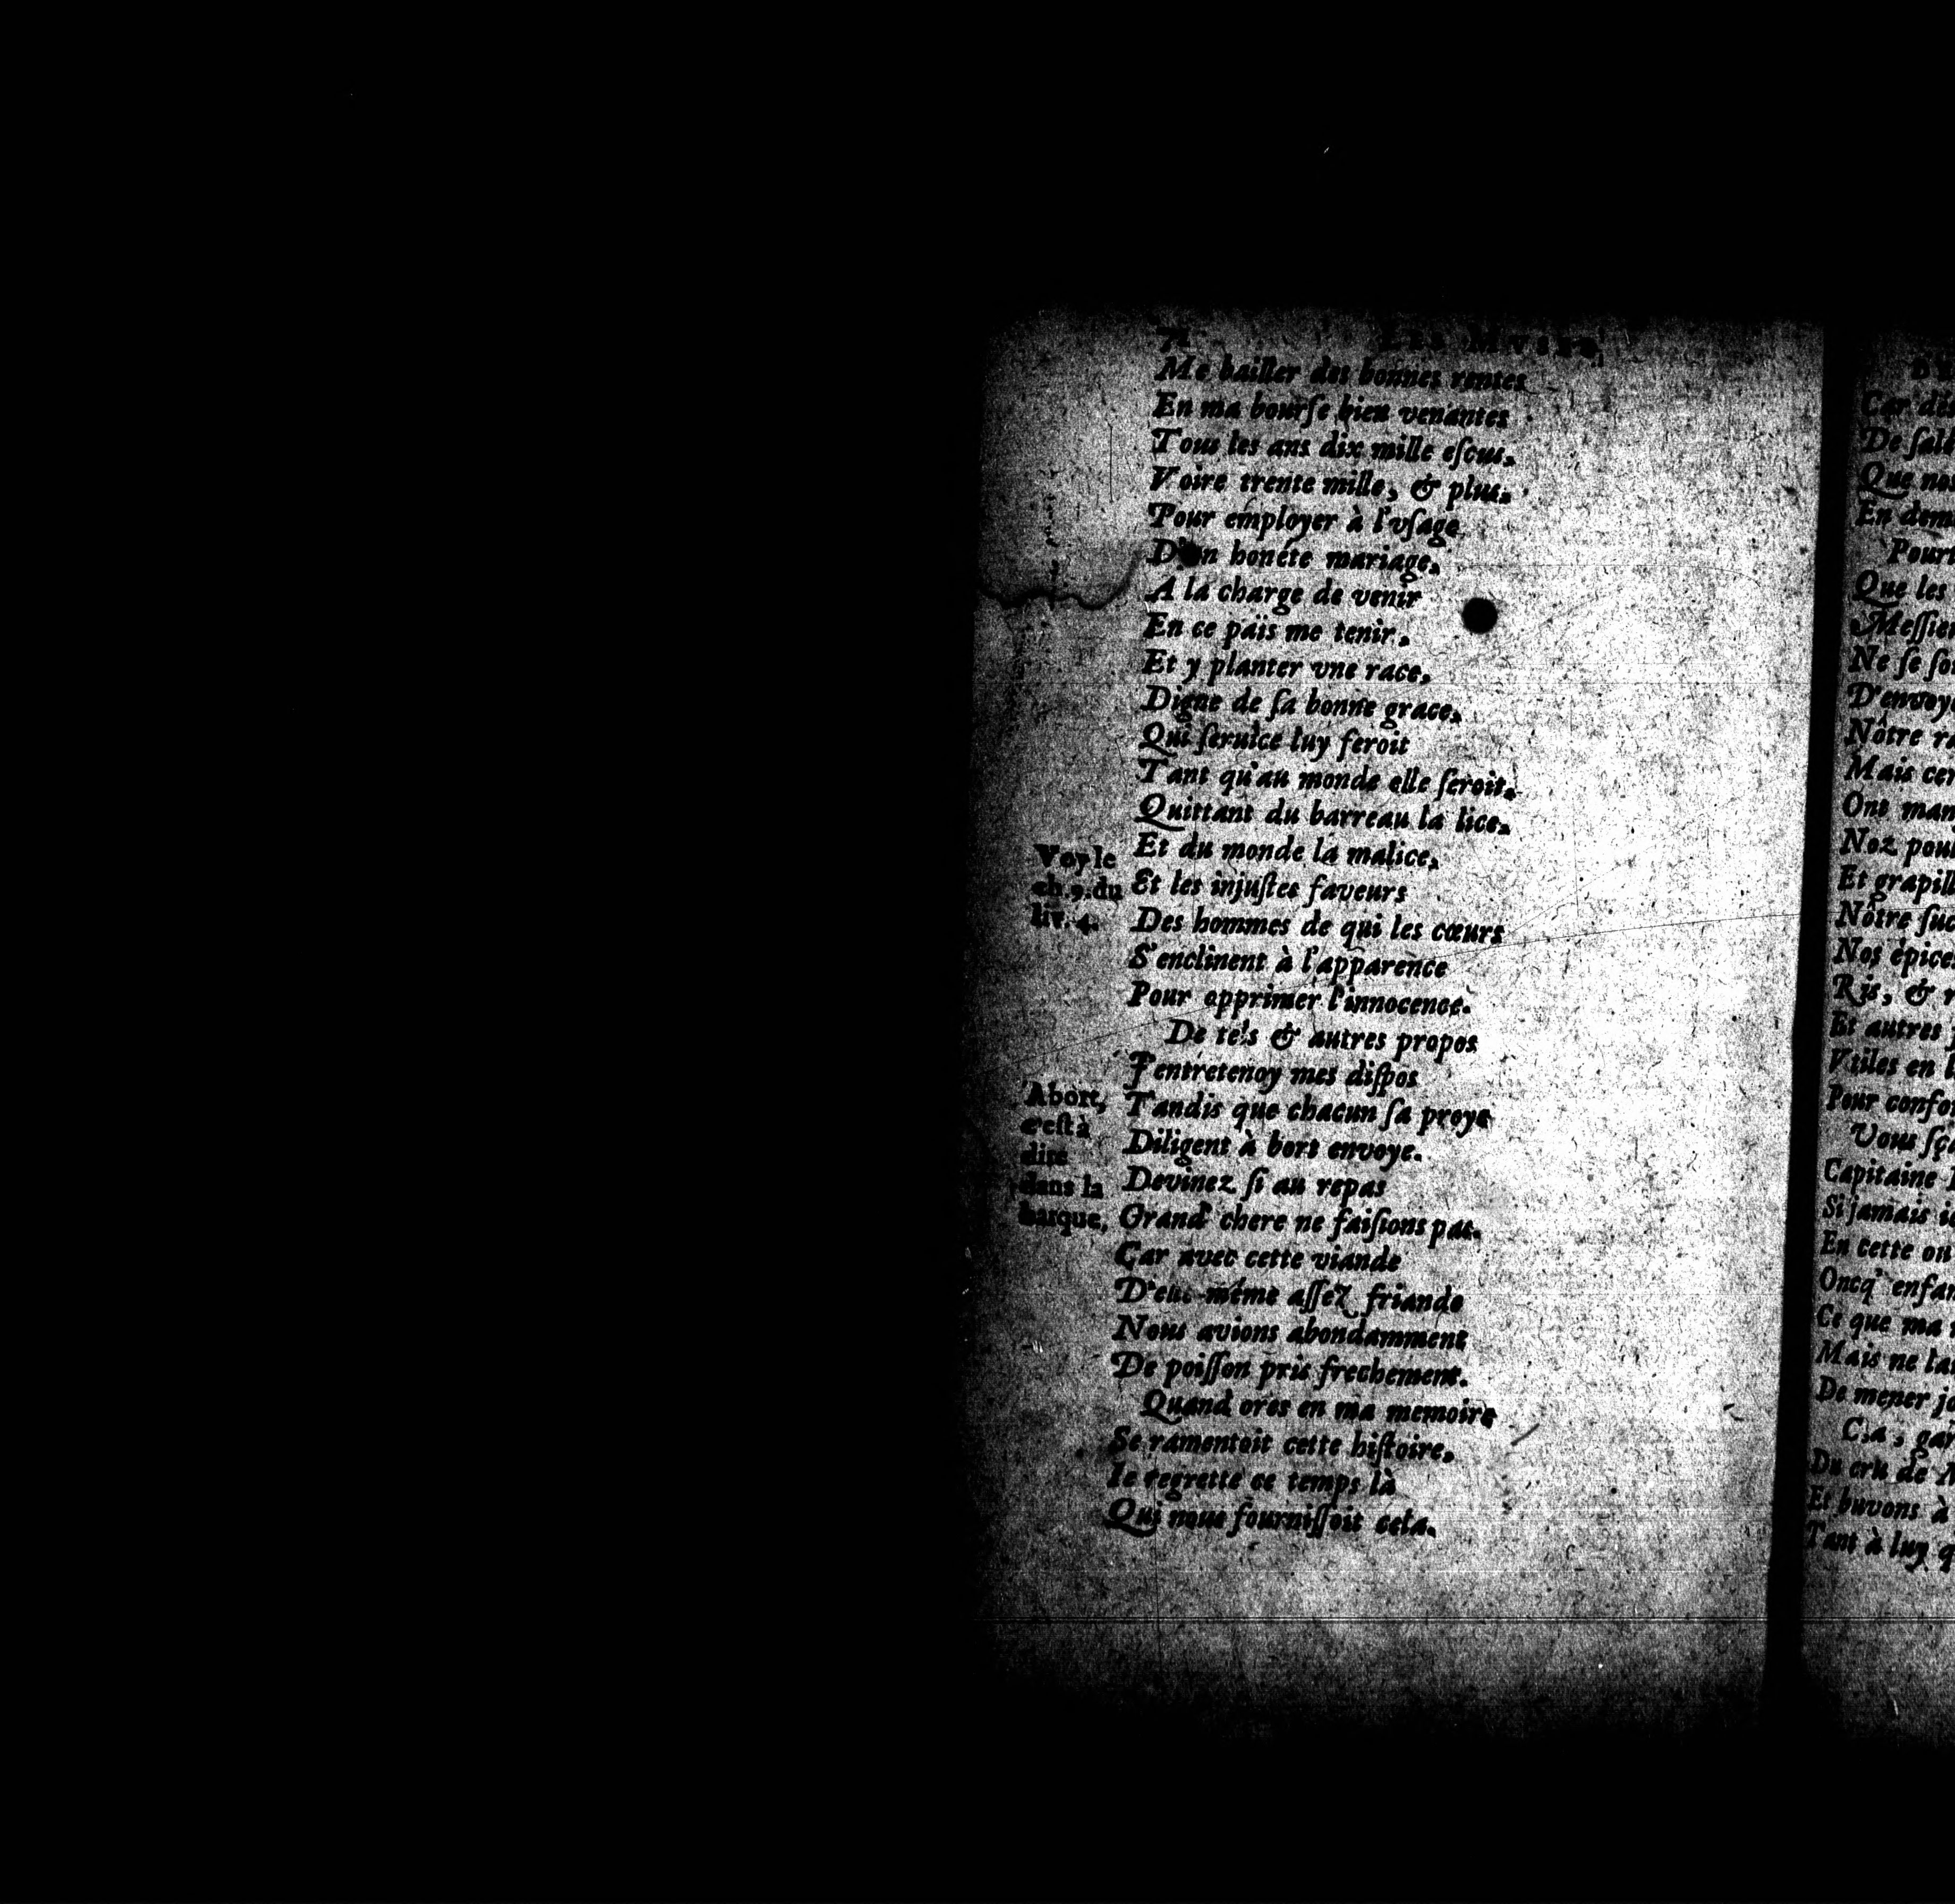 LES MVSES
Me bailler des bonnes rentes
En ma bourſe bien venantes
Tous les ans dix mille eſcus,
Voire trente mille, & plus.
Pour employer à l'vſage
D'vn honéte mariage,
A la charge de venir
En ce païs me tenir,
Et y planter vne race,
Digne de ſa bonne grace,
Qui ſeruice luy feroit
Tant qu'au monde elle ſeroit.
Quittant du barreau la lice,
Et du monde la malice,
Et les injuſtes faveurs
Des hommes de qui les cœurs
S'enclinent à l'apparence
Pour opprimer l'innocence.
De tels & autres propos
J'entretenoy mes diſpos
Tandis que chacun ſa proye
Diligent à bort envoye.
Devinez ſi au repas
Grand' chere ne faiſions pas.
Car avec cette viande
D'elle-méme aſſez friande
Nous avions abondamment
De poiſſon pris frechement.
Quand ores en ma memoire
Se ramentoit cette hiſtoire,
Ie regrette ce temps là
Qui nous fourniſſoit cela.
Voy le
ch. 9. du
liv. 4.
Abort,
c'eſt à
dire
dans la
barque,
Car
De
Que
En
Que les
Ne ſe
D'envoy
Nôtre
Mais
Ont
Noz
Et
Nôtre
Nos
Ris, &
Et autres
Vtiles en
Pour
Vous
Capitaine
Si jamais
En cette
Oncq'
Ce que ma
Mais ne
De mener
Ç'a,
Du cru de
Et buvons à
Tant à luy